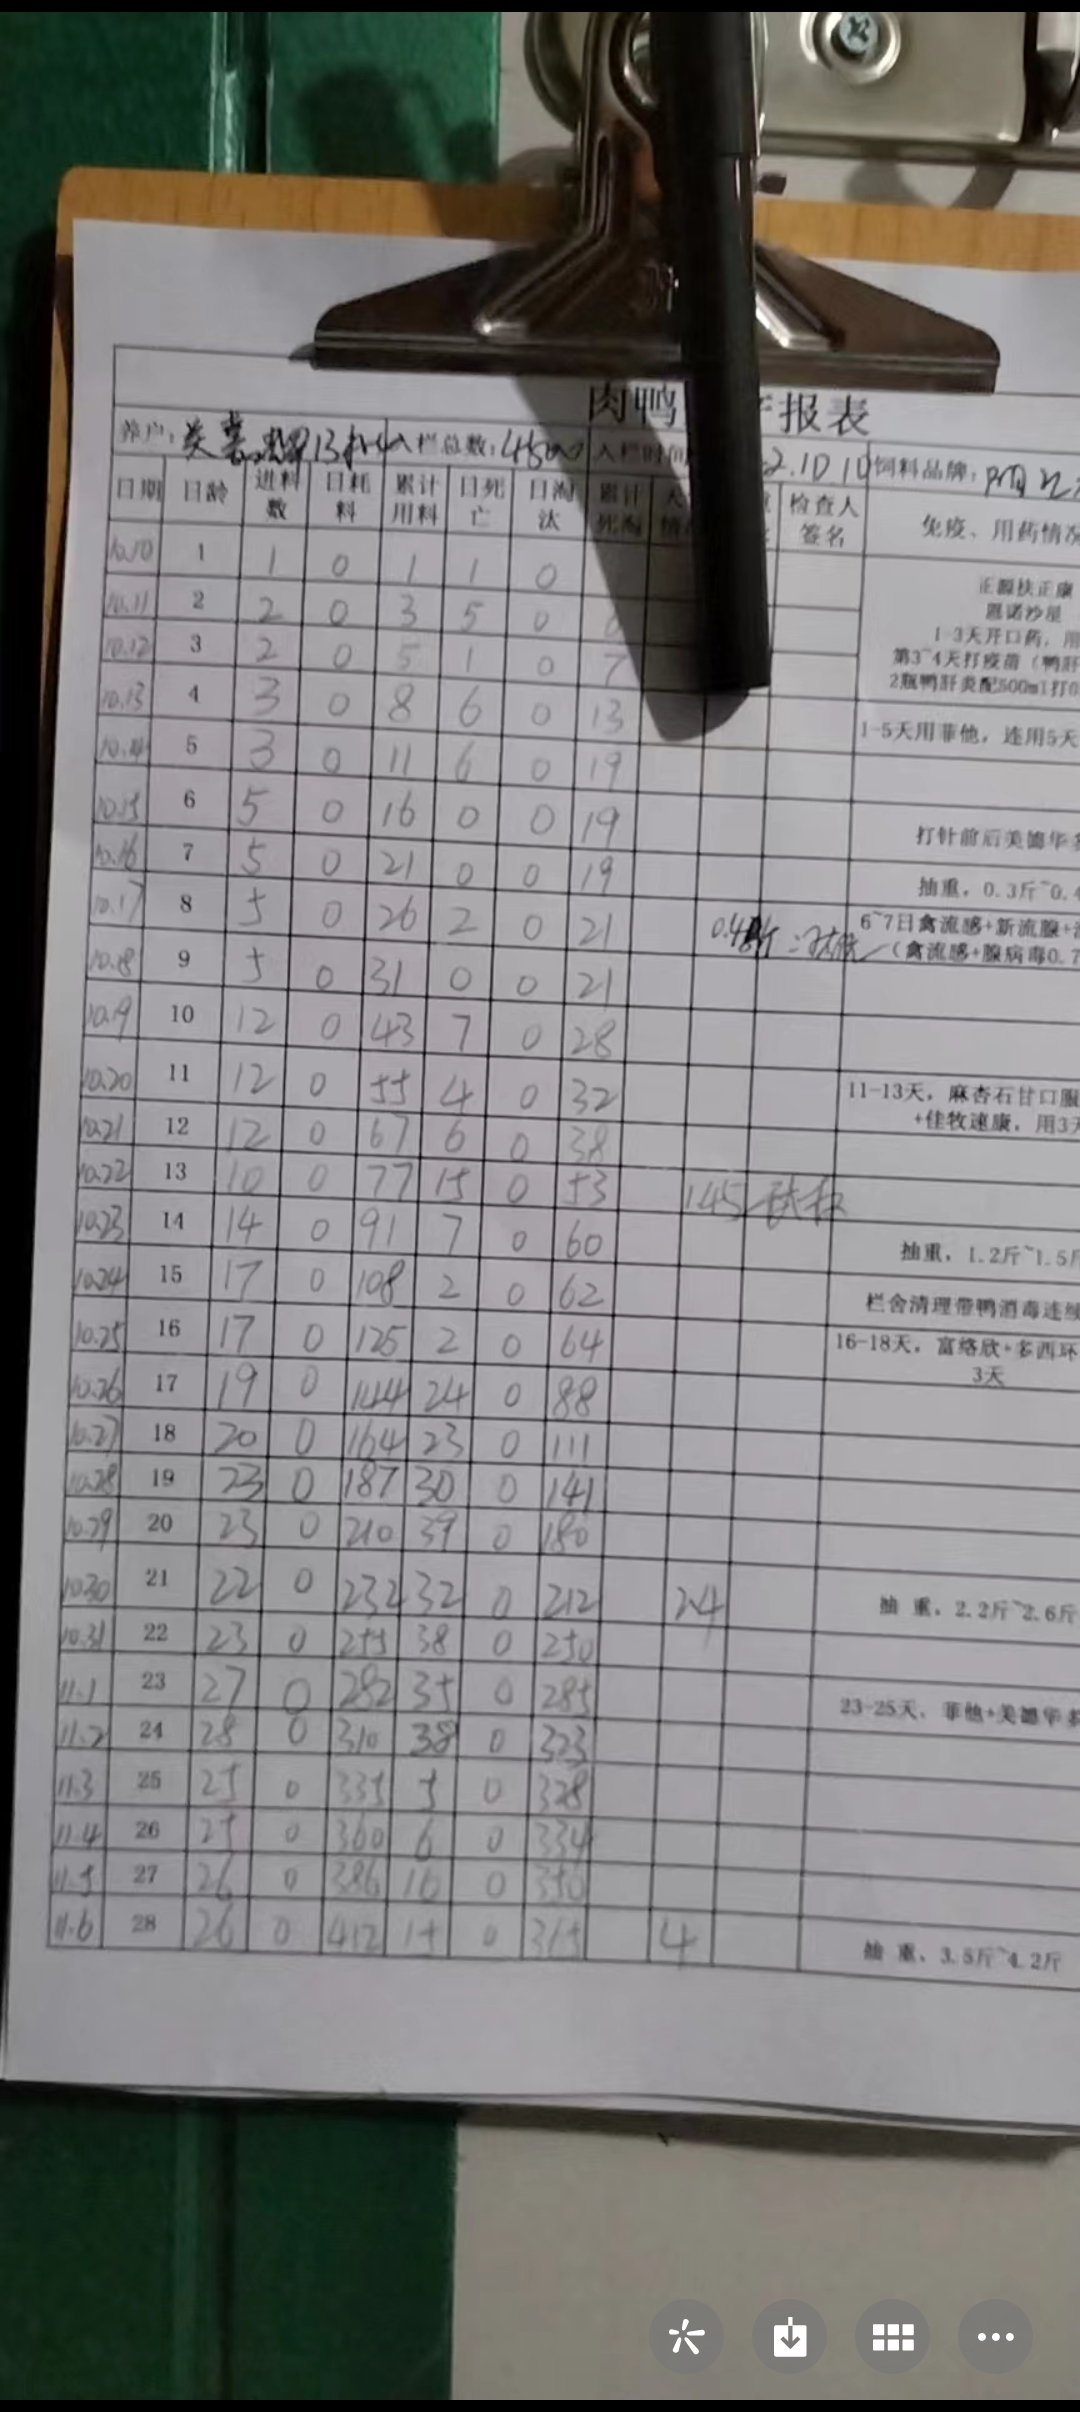 肉鸭 报表
养户: 13 入栏总数:4500 入栏时间 2.10.10 饲料品牌:
日期 日龄 进料数 日耗料 累计用料 日死亡 日淘汰 累计死淘 检查人签名 免疫、用药情况
10.10 1 1 0 1 1 0
正源扶正康
恩诺沙星
10.11 2 2 0 3 5 0
1-3天开口药,用
10.12 3 2 0 5 1 0 7
第3~4天打疫苗(鸭肝
2瓶鸭肝炎配500ml打0
10.13 4 3 0 8 6 0 13 1-5天用菲他,连用5天
10.14 5 3 0 11 6 0 19
10.15 6 5 0 16 0 0 19 打针前后美德华多
10.16 7 5 0 21 0 0 19 抽重,0.3斤~0.4
10.17 8 5 0 26 2 0 21 6~7日禽流感+新流腺+
(禽流感+腺病毒0.7
10.18 9 5 0 31 0 0 21
10.19 10 12 0 43 7 0 28
10.20 11 12 0 55 4 0 32 11-13天,麻杏石甘口服
+佳牧速康,用3天
10.21 12 12 0 67 6 0 38
10.22 13 10 0 77 15 0 53 145
10.23 14 14 0 91 7 0 60 抽重,1.2斤~1.5斤
10.24 15 17 0 108 2 0 62 栏舍清理带鸭消毒连续
10.25 16 17 0 125 2 0 64 16-18天,富络欣+多西环
3天
10.26 17 19 0 144 24 0 88
10.27 18 20 0 164 23 0 111
10.28 19 23 0 187 30 0 141
10.29 20 23 0 210 39 0 180
10.30 21 22 0 232 32 0 212 24 抽 重,2.2斤~2.6斤
10.31 22 23 0 255 38 0 250
11.1 23 27 0 282 35 0 285 23-25天,菲他+美德华多
11.2 24 28 0 310 38 0 323
11.3 25 25 0 335 5 0 328
11.4 26 25 0 360 6 0 334
11.5 27 26 0 386 16 0 350
11.6 28 26 0 412 15 0 365 4 抽 重,3.5斤~4.2斤